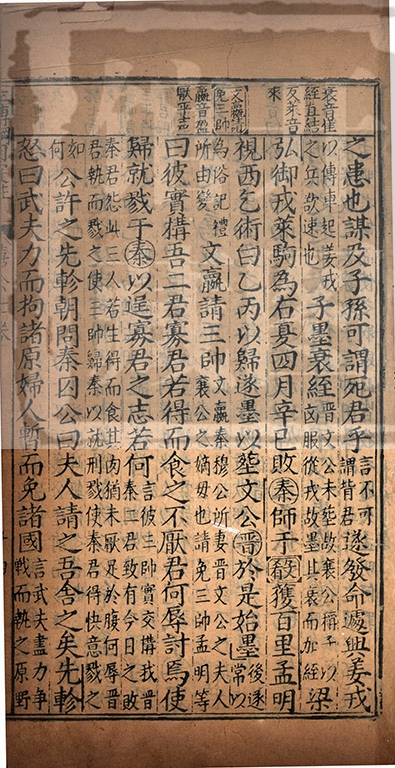 衰音崔
絰直結
反萊音
來
文嬴請
免三帥
嬴音盈
厭平声
之患也謀及子孫可謂死君乎言不可謂背君遂發命遽興姜戎
以傳車起姜戎之兵欲速也子墨衰絰晋文公未塟故襄公稱子以凶服從戎故墨其衰而加絰梁
弘御戎萊駒為右夏四月辛巳敗秦師于殽獲百里孟明
視西乞術白乙丙以歸遂墨以塟文公晉於是始墨後遂常以
為俗記禮所由變文嬴請三帥文嬴秦穆公所妻晋文公之夫人襄公之嫡母也請免三帥孟明等
曰彼實構吾二君寡君若得而食之不厭君何辱討焉使
歸就戮于秦以逞寡君之志若何言彼三帥實交構我晋秦二君致有今日之敗
秦君怨此三人若生得而食其肉猶未厭足於腹何辱晋君執而戮之使三帥歸秦以就刑戮使秦君得快意戮之
如何公許之先軫朝問秦囚公曰夫人請之吾舍之矣先軫
怒曰武夫力而拘諸原婦人暫而免諸國言武夫盡力爭戰而執之原野